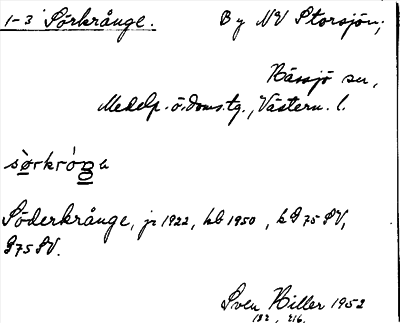 1-3 Sörkrånge. By NV Storsjön;
Hässjö sn,
Medelp. ö. doms.tg., Västern. l.
Söderkrånge, jr 1922, hb 1950, kG 75 SV,
G75 SV.
Sven Hiller 1952
182, 216.